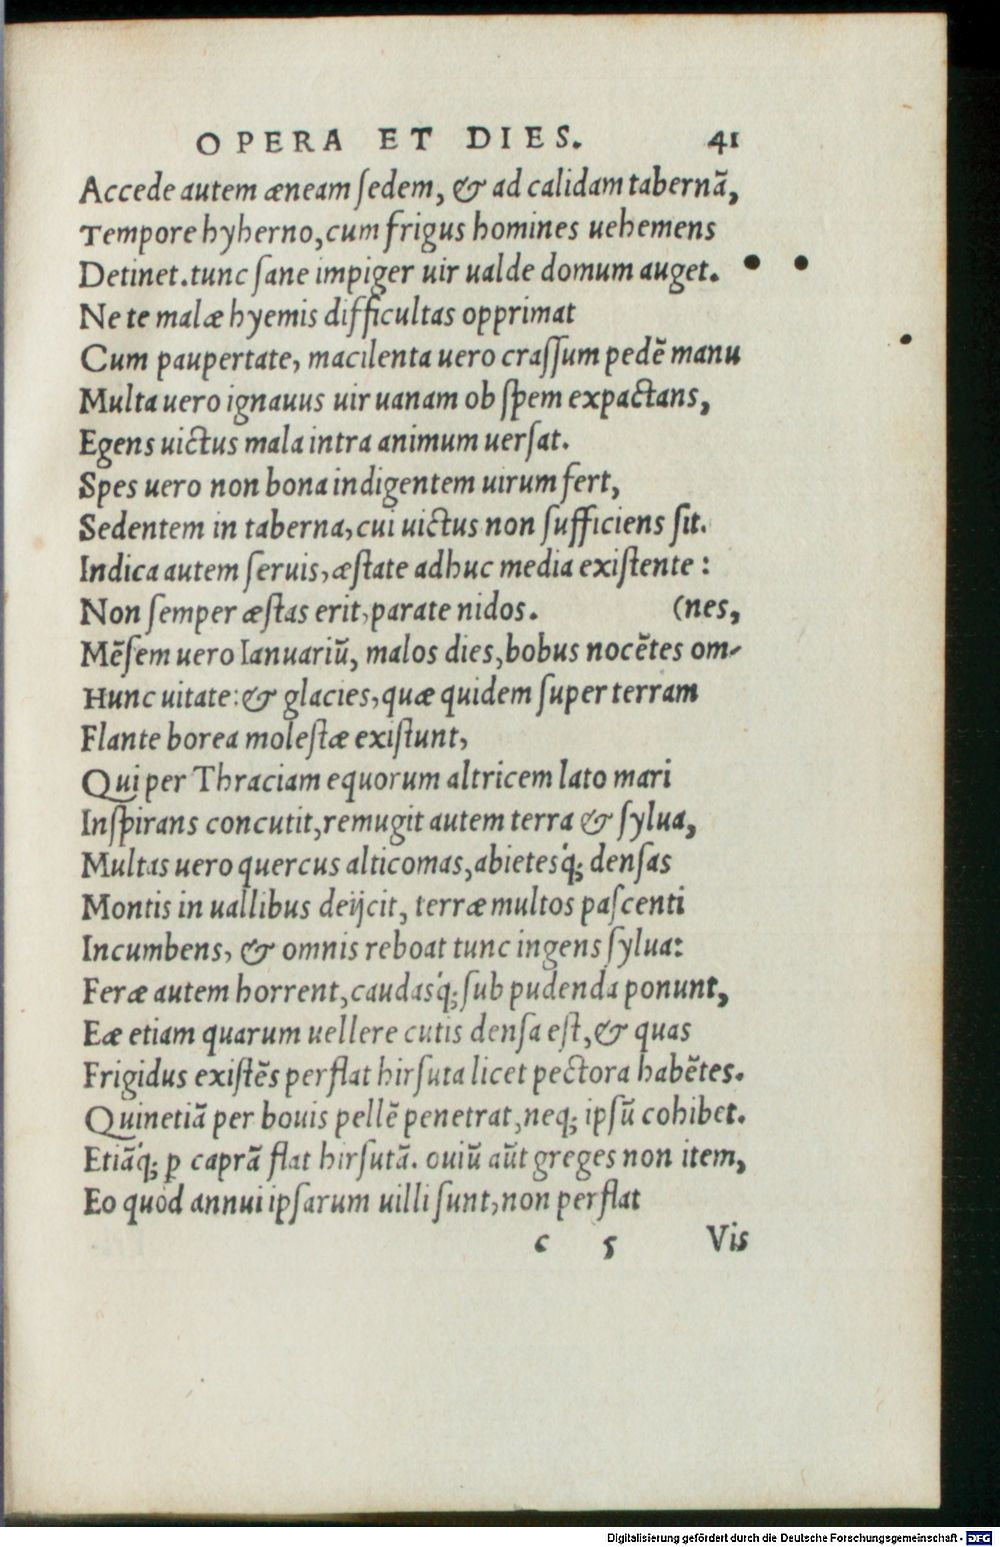 OPERA ET DIES. 41
Accede autem æneam ſedem, & ad calidam tabernã,
Tempore hyherno, cum frigus homines uehemens
Detinet. tunc ſane impiger uir ualde domum auget.
Ne te malæ hyemis difficultas opprimat
Cum paupertate, macilenta uero craſſum pedẽ manu
Multa uero ignauus uir uanam ob ſpem expactans,
Egens uictus mala intra animum uerſat.
Spes uero non bona indigentem uirum fert,
Sedentem in taberna, cui uictus non ſufficiens ſit.
Indica autem ſeruis, æſtate adhuc media exiſtente:
Non ſemper æſtas erit, parate nidos. (nes,
Mẽſem uero Ianuariũ, malos dies, bobus nocẽtes om-
Hunc uitate: & glacies, quæ quidem ſuper terram
Flante borea moleſtæ exiſtunt,
Qui per Thraciam equorum altricem lato mari
Inſpirans concutit, remugit autem terra & ſylua,
Multas uero quercus alticomas, abietesq́; denſas
Montis in uallibus deijcit, terræ multos paſcenti
Incumbens, & omnis reboat tunc ingens ſylua:
Feræ autem horrent, caudasq́; ſub pudenda ponunt,
Eæ etiam quarum uellere cutis denſa eſt, & quas
Frigidus exiſtẽs perflat hirſuta licet pectora habẽtes.
Quinetiã per bouis pellẽ penetrat, neq; ipſũ cohibet.
Etiãq́; ꝑ caprã flat hirſutã. ouiũ aũt greges non item,
Eo quòd annui ipſarum uilli ſunt, non perflat
c 5 Vis
Digitalisierung gefördert durch die Deutsche Forschungsgemeinschaft - DFG